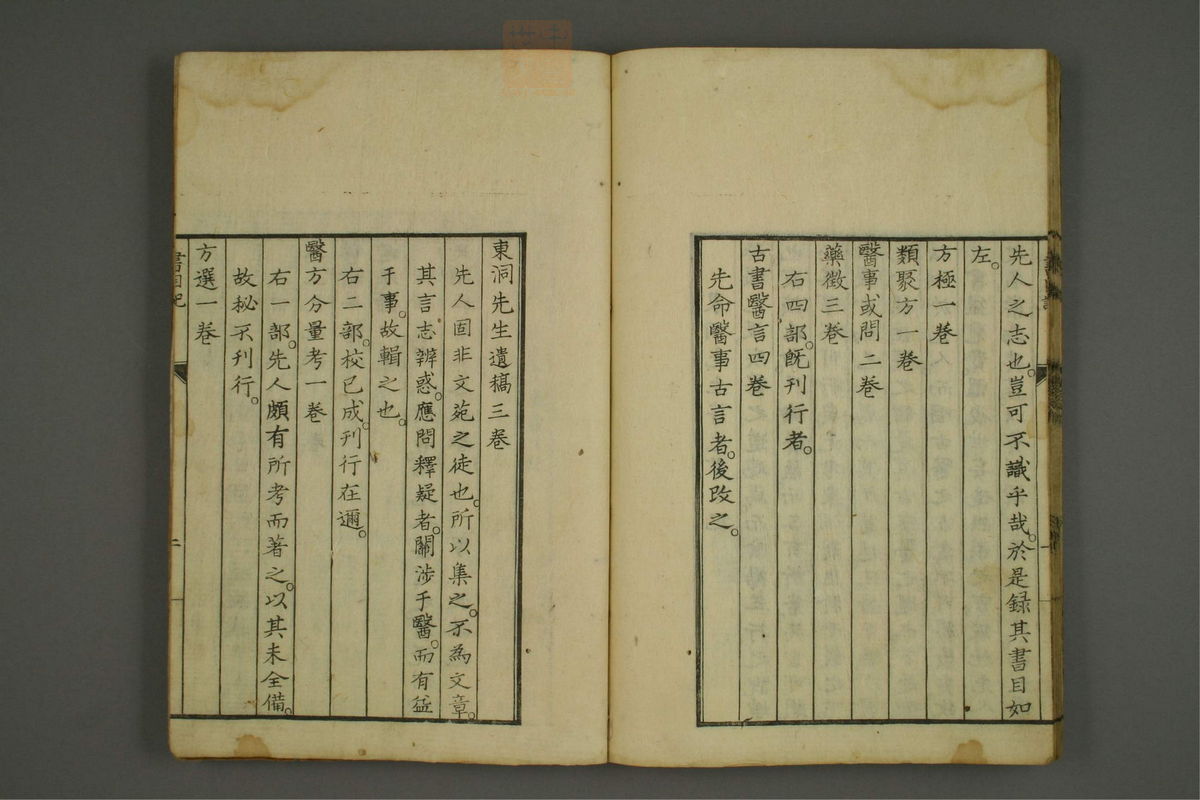 先人之志也。豈可不識乎哉。於是録其書目如
左。
方極一卷
類聚方一卷
醫事或問二卷
藥徵三卷
右四部。既刊行者。
古書醫言四卷
先命醫事古言者。後改之。
東洞先生遺稿三卷
先人固非文苑之徒也。所以集之。不為文章。
其言志辨惑。應問釋疑者。關涉于醫。而有益
于事。故輯之也。
右二部。校已成。刊行在邇。
醫方分量考一卷
右一部。先人頗有所考而著之。以其未全備。
故秘不刊行。
方選一卷
書目記
二